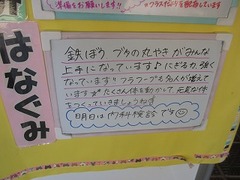 準備をお願いします!!
はなぐみ
鉄ぼう ブタの丸やきがみんな
上手になっています♪にぎる力も強く
なっています!!フラフープも名人が増えて
いますがたくさん体を動かして 元気な体
をつくっていきましょうね
明日は内科検診です